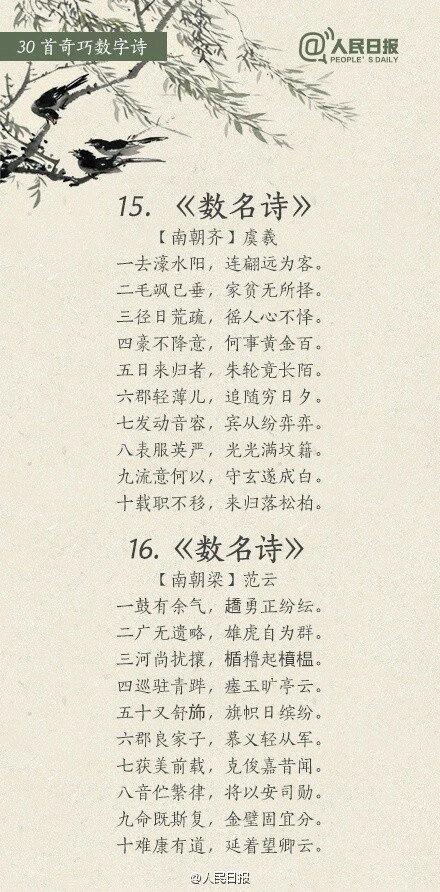 30 首奇巧数字诗
@人民日报
PEOPLE'S DAILY
15. 《数名诗》
【南朝齐】虞羲
一去濠水阳，连翩远为客。
二毛飒已垂，家贫无所择。
三径日荒疏，徭人心不怿。
四豪不降意，何事黄金百。
五日来归者，朱轮竟长陌。
六郡轻薄儿，追随穷日夕。
七发动音容，宾从纷弈弈。
八表服英严，光光满坟籍。
九流意何以，守玄遂成白。
十载职不移，来归落松柏。
16. 《数名诗》
【南朝梁】范云
一鼓有余气，趫勇正纷纭。
二广无遗略，雄虎自为群。
三河尚扰攘，楯橹起槚榅。
四巡驻青跸，瘗玉旷亭云。
五十又舒旆，旗帜日缤纷。
六郡良家子，慕义轻从军。
七获美前载，克俊嘉昔闻。
八音伫繁律，将以安司勋。
九命既斯复，金璧固宜分。
十难康有道，延着望卿云。
@人民日报